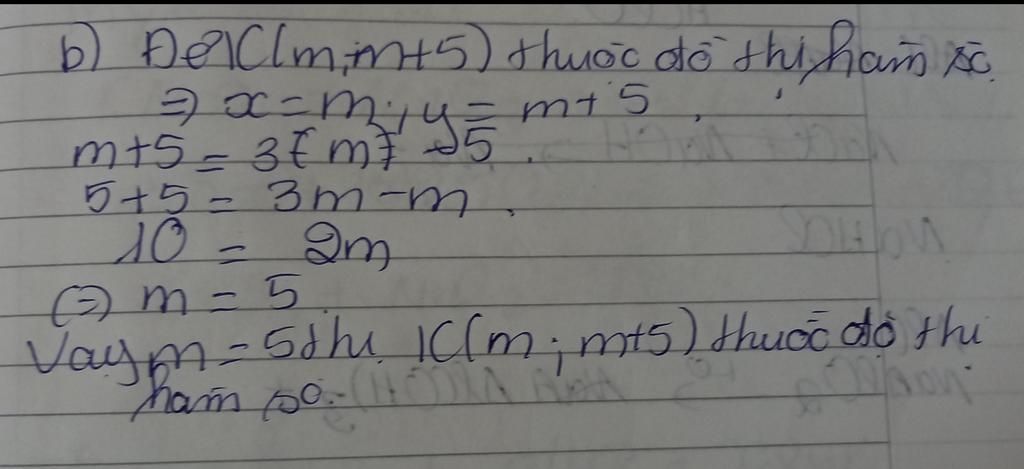 b) Để K(m;m+5) thuộc đồ thị hàm số
=> x=m; y=m+5.
m+5 = 3[m] -5.
5+5 = 3m-m.
10 = 2m
(=) m = 5
Vậy m = 5 thì K(m; m+5) thuộc đồ thị
hàm số.